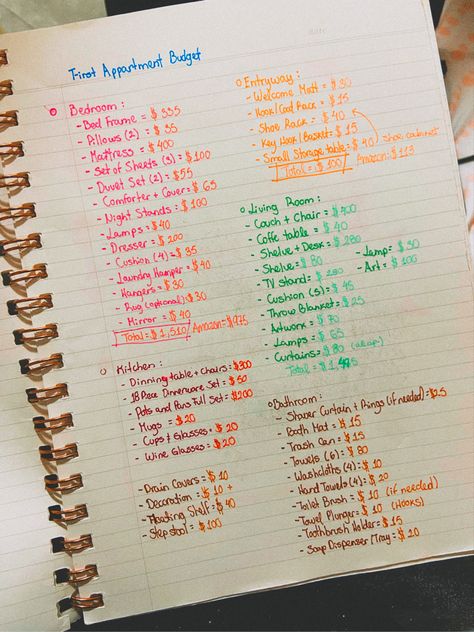 First Appartment Budget
Bedroom:
- Bed Frame = $335
- Pillows (2) = $55
- Mattress = $400
- Set of Sheets (3) = $100
- Duvet Set (2) = $55
- Comforter + Covers = $65
- Night Stands = $100
- Lamps = $40
- Dresser = $200
- Cushion (4) = $35
- Laundry Hamper = $40
- Hangers = $30
- Rug (optional) $30
- Mirror = $40
Total = $1,510 Amazon = $975
Kitchen:
- Dinning table + Chairs = $300
- 18 Piece Dinnerware Set = $50
- Pots and Pans Full Set = $200
- Mugs = $20
- Cups & Glasses = $20
- Wine Glasses = $20
- Drain Covers = $10
- Decoration = $10 +
- Floating Shelf = $40
- Step stool = $100
Entryway:
- Welcome Matt = $30
- Hook/Coat Rack = $15
- Shoe Rack = $40
- Key Hook/Basket = $15
- Small Storage table = $40 shoe cabinet
Total = $100 Amazon: $113
Living Room:
- Couch + Chair = $400
- Coffe table = $40
- Shelve + Desk = $280
- Shelve = $80
- TV stand =
- Cushion (5) = $45
- Throw Blanket = $25
- Artwork = $70
- Lamps = $65
- Curtains = $80
Total =
- Lamp = $30
- Art = $100
Bathroom:
- Shower Curtain + Rings (if needed) = $25
- Bath Mat = $15
- Trash Can = $15
- Towels (6) = $80
- Washcloths (4) = $10
- Hand Towels (4) = $20
- Toilet Brush = $10 (if needed)
- Towel Plunger = $10 (Hooks)
- Toothbrush Holder = $15
- Soap Dispenser/Tray = $20